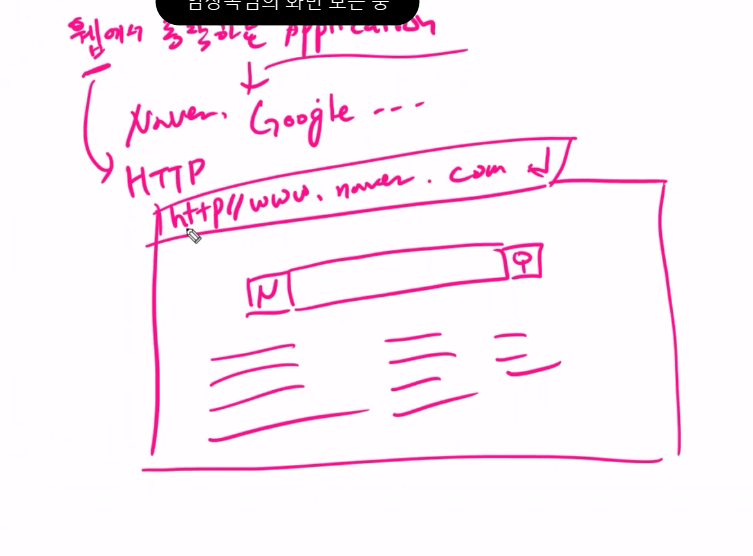 화면 보는 중
웹에서 동작하는 application
Naver. Google ---
HTTP
http//www.naver.com
N